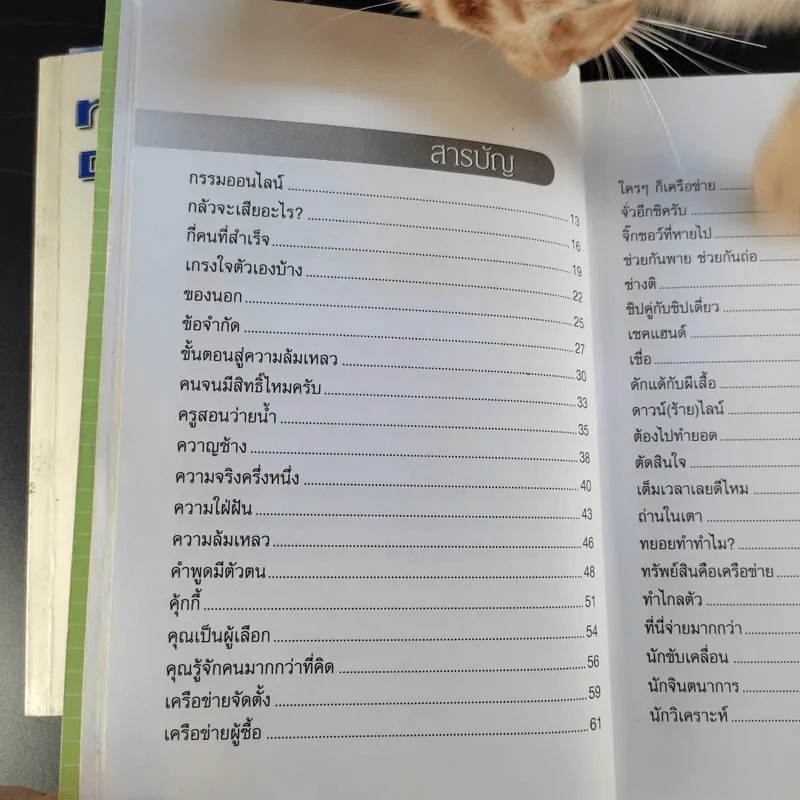 สารบัญ
กรรมออนไลน์ 13
กลัวจะเสียอะไร? 16
กี่คนที่สำเร็จ 19
เกรงใจตัวเองบ้าง 22
ของนอก 25
ข้อจำกัด 27
ขั้นตอนสู่ความล้มเหลว 30
คนจนมีสิทธิ์ไหมครับ 33
ครูสอนว่ายน้ำ 35
ควาญช้าง 38
ความจริงครึ่งหนึ่ง 40
ความใฝ่ฝัน 43
ความล้มเหลว 46
คำพูดมีตัวตน 48
คุ้กกี้ 51
คุณเป็นผู้เลือก 54
คุณรู้จักคนมากกว่าที่คิด 56
เครือข่ายจัดตั้ง 59
เครือข่ายผู้ซื้อ 61
ใครๆ ก็เครือข่าย
จั่วอีกซิครับ
จิ๊กซอว์ที่หายไป
ช่วยกันพาย ช่วยกันถ่อ
ช่างติ
ชิปคู่กับชิปเดี่ยว
เชคแฮนด์
เชื่อ
ดักแด้กับผีเสื้อ
ดาวน์(ร้าย)ไลน์
ต้องไปทำยอด
ตัดสินใจ
เต็มเวลาเลยดีไหม
ถ่านในเตา
ทยอยทำทำไม?
ทรัพย์สินคือเครือข่าย
ทำไกลตัว
ที่นี่จ่ายมากกว่า
นักขับเคลื่อน
นักจินตนาการ
นักวิเคราะห์